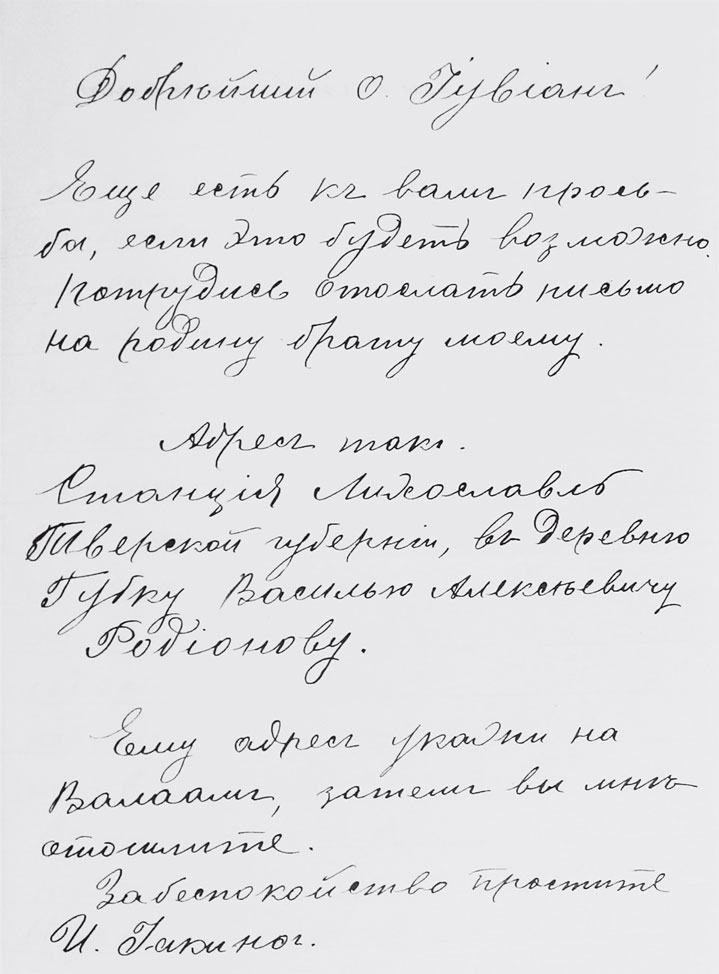 Добрѣйший О. Іувіанъ!
Еще есть къ вамъ прось-
ба, если это будетъ возможно.
Потрудись отослать письмо
на родину брату моему.
Адресъ такъ.
Станція Лихославль
Тверской губерніи, въ деревню
Губку Василью Алексѣевичу
Родіонову.
Ему адресъ укажи на
Валаамъ, затемъ вы мнѣ
отошлите.
За беспокойство простите
И. Іакинѳъ.